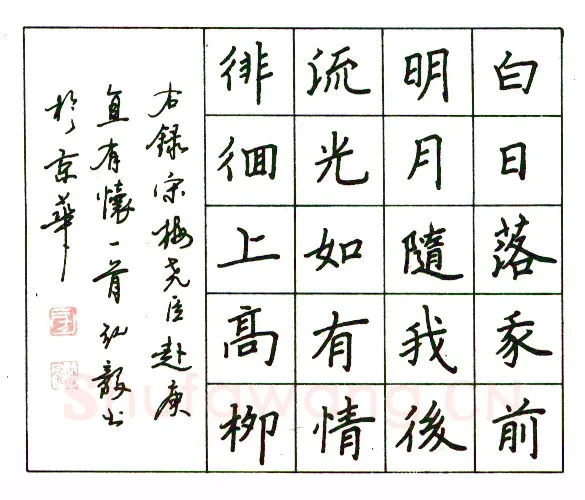 白日落我前
明月隨我後
流光如有情
徘徊上高柳
右録宋梅尧臣赴庚
直有懷一首弘毅书
於京華
Shufawang.CN